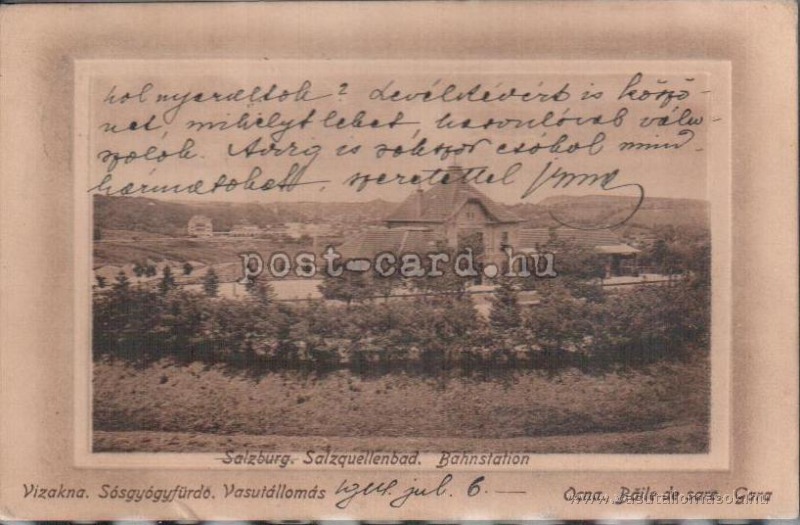 hol nyaraltok? Levéltévért is köszö-
net, mihelyt lehet hasonlóval vála-
szolok. Addig is sokszor csókol mind-
hármatokat, szeretettel Irma
post-card.hu
Salzburg. Salzquellenbad. Bahnstation
Vizakna. Sósgyógyfürdő. Vasutállomás
jul. 6.
Ocna. Băile de sare. Gara
www.vasutallomasok.hu